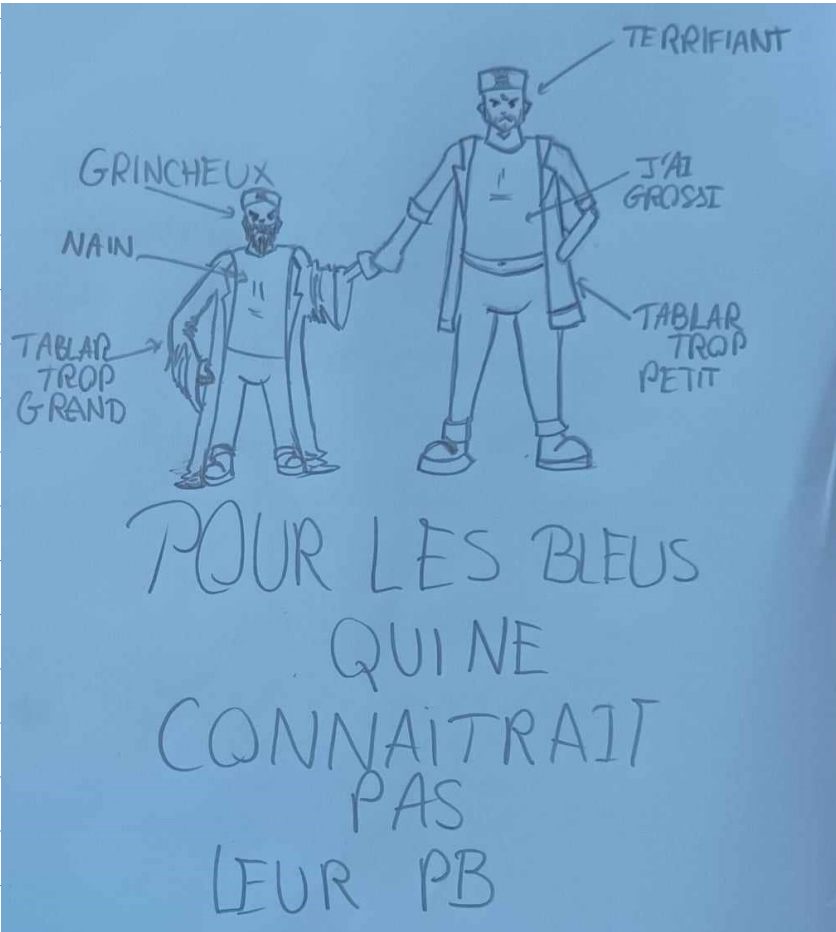 TERRIFIANT
GRINCHEUX
J'AI
GROSSI
NAIN
TABLAR
TROP
GRAND
TABLAR
TROP
PETIT
POUR LES BLEUS
QUI NE
CONNAiTRAIT
PAS
LEUR PB